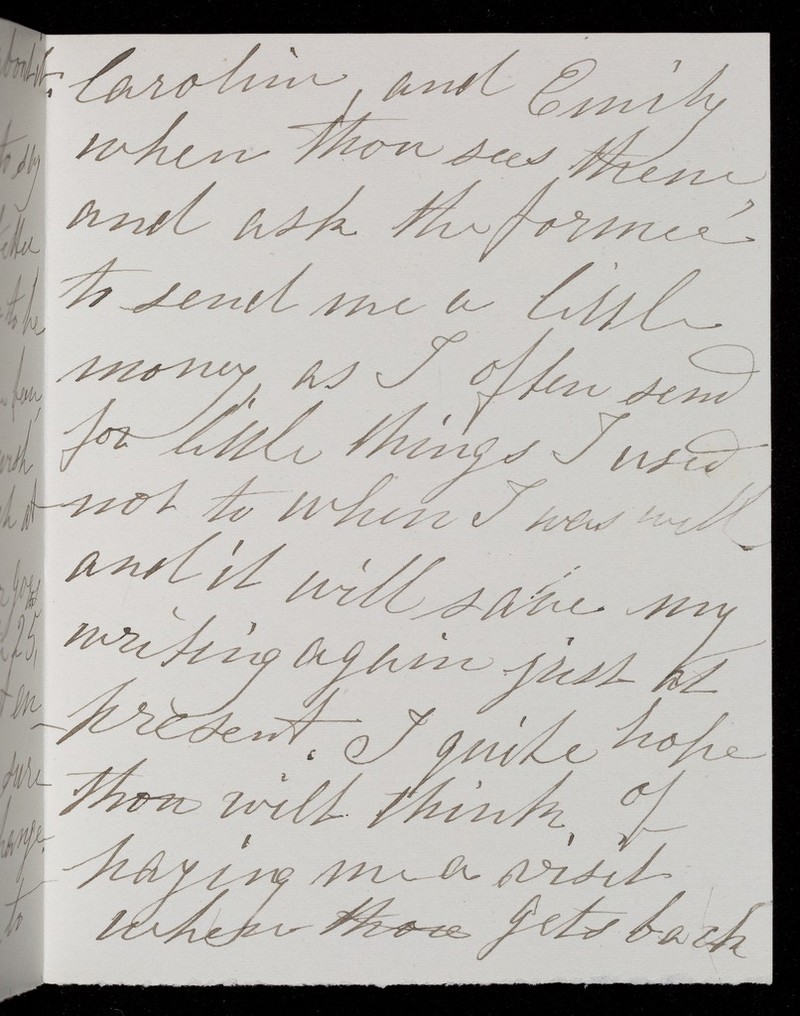 Carolin, and Emily
when thou sees them
and ask the former
to send me a little
money, as I often send
for little things I used
not to when I was well
and it will save my
writing again just at
present. I quite hope
thou wilt think of
paying me a visit
when thou gets back